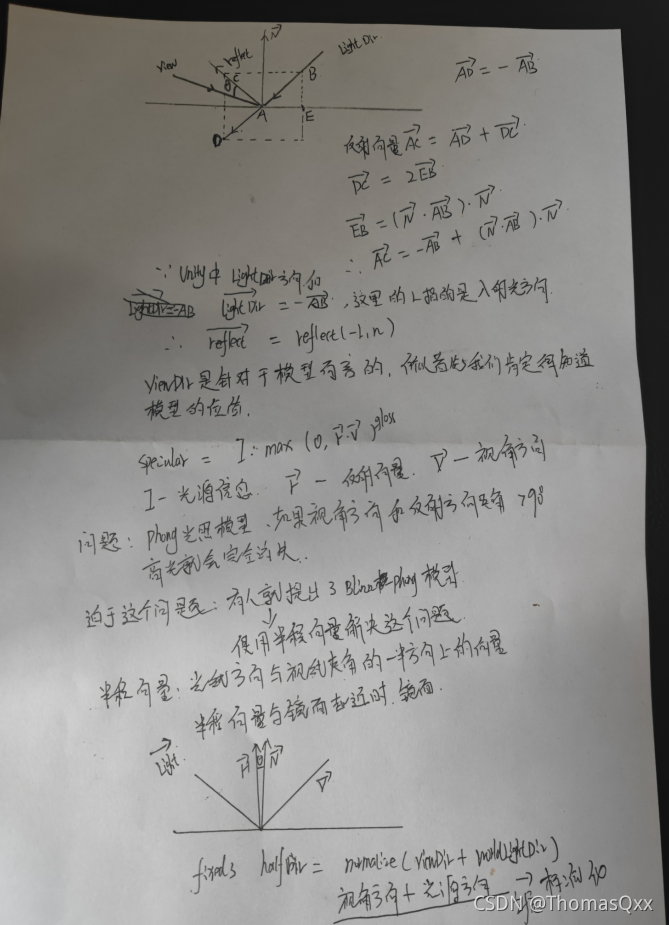 view
reflect
N
LightDir
θ
C
B
A
E
D
AD = - AB
反射向量 AC = AD + DC
DC = 2EB
EB = (N · AB) · N
∴ AC = -AB + (N · AB) · N
∵ Unity中 LightDir方向和
LightDir = -AB
LightDir = -AB ,这里的L指的是入射光方向.
∴ reflect = reflect(-l,n)
viewDir是针对于模型而言的, 所以首先我们肯定得知道
模型的位置.
specular = I · max (0, r·v)gloss
I - 光源信息. r - 反射向量. v - 视角方向
问题: phong光照模型, 如果视角方向和反射方向夹角 >90
高光就会完全消失.
迫于这个问题: 有人就提出了Blinn phong 模型
↓
使用半程向量解决这个问题.
半程向量: 光线方向与视线夹角的一半方向上的向量
半程向量与镜面越近时. 镜面.
Light
H
θ
N
V
fixed3 halfDir = normalize(viewDir + worldLightDir)
视角方向 + 光源方向
CSDN @ThomasQxx